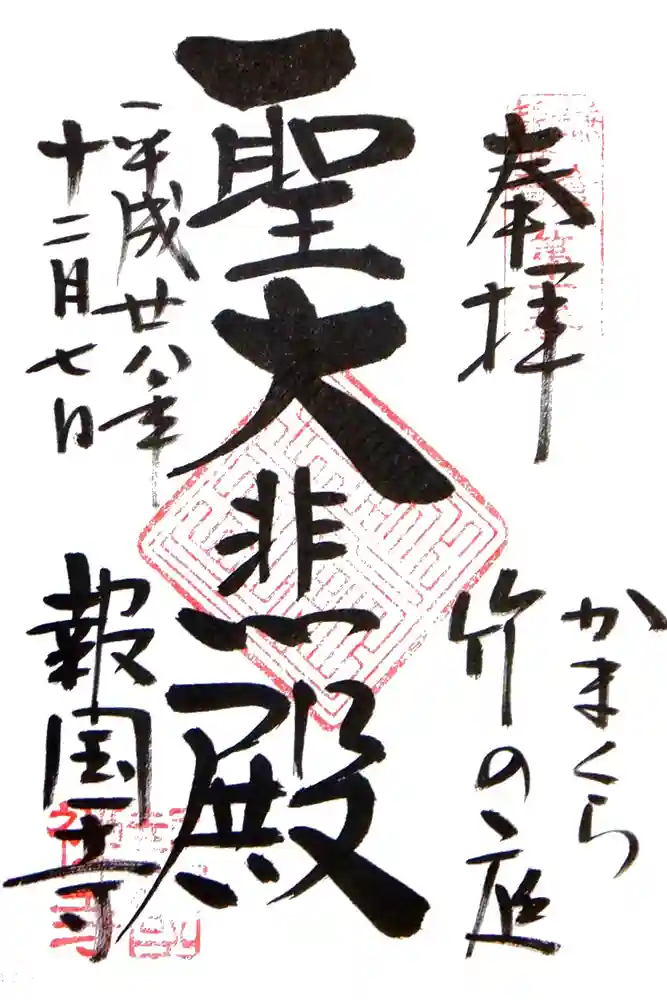 奉拝
かまくら
竹の庭
聖大悲殿
平成廿八年
十二月七日
報国寺